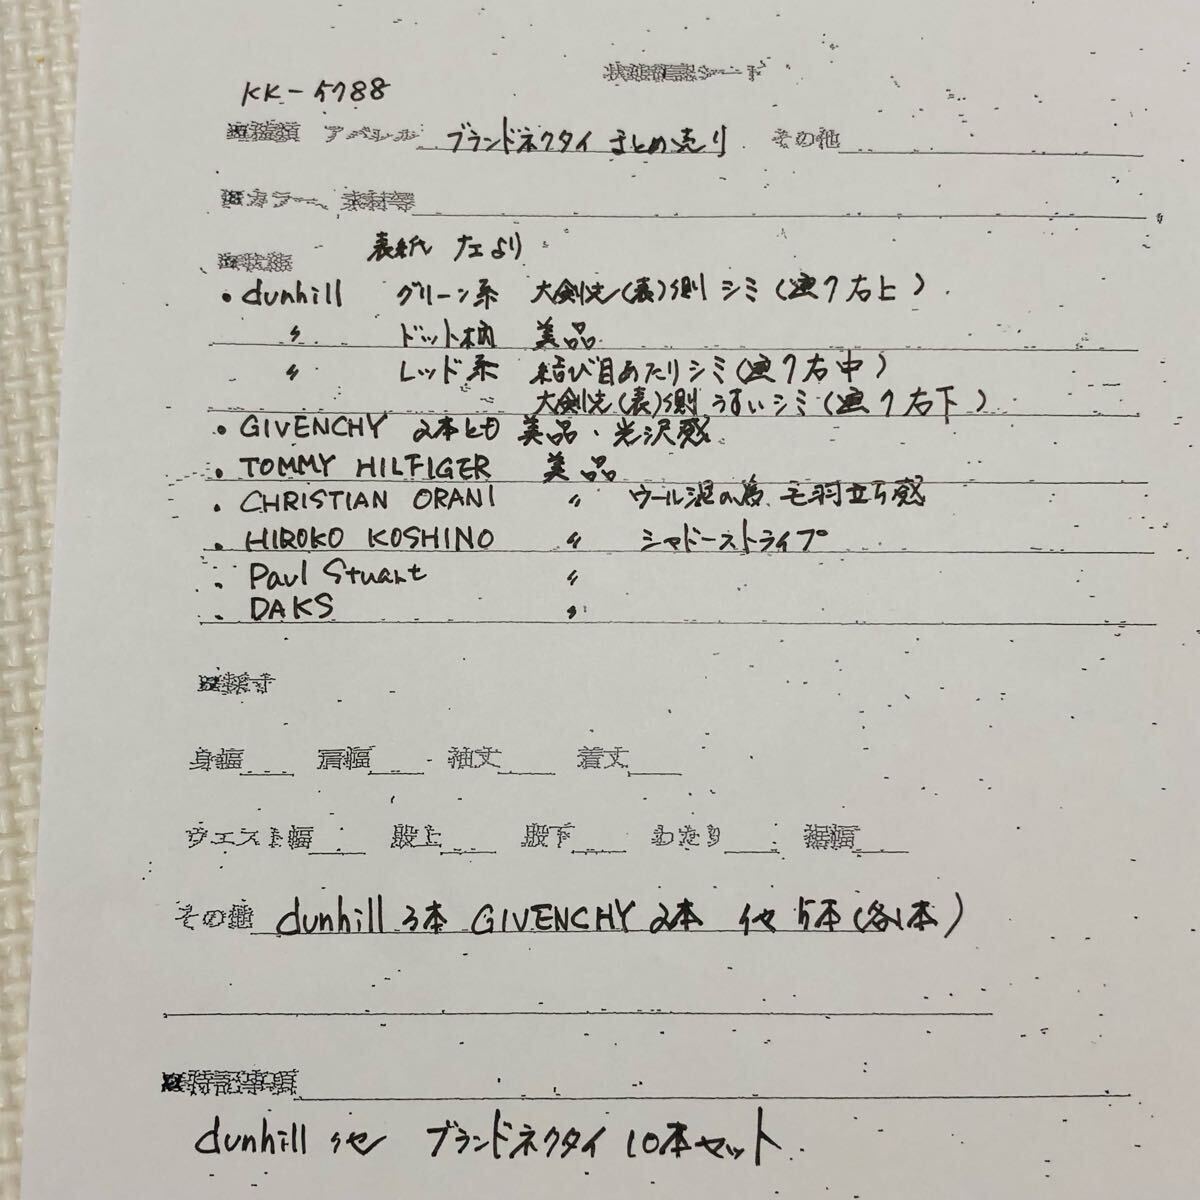 状態確認シート
KK-5788
種類 アパレル ブランドネクタイ まとめ売り その他
カラー、素材等
状態 表紙 左より
・dunhill グリーン系 大剣先(表)側 シミ(画7右上)
〃 ドット柄 美品
〃 レッド系 結び目あたりシミ(画7右中)
大剣先(表)側 うすいシミ(画7右下)
・GIVENCHY 2本とも 美品・光沢感
・TOMMY HILFIGER 美品
・CHRISTIAN ORANI 〃 ウール混の為 毛羽立ち感
・HIROKO KOSHINO 〃 シャドーストライプ
・Paul Stuart 〃
・DAKS 〃
採寸
身幅 肩幅 袖丈 着丈
ウエスト幅 股上 股下 わたり 裾幅
その他 dunhill 3本 GIVENCHY 2本 他 5本(各1本)
特記事項
dunhill 他 ブランドネクタイ 10本セット